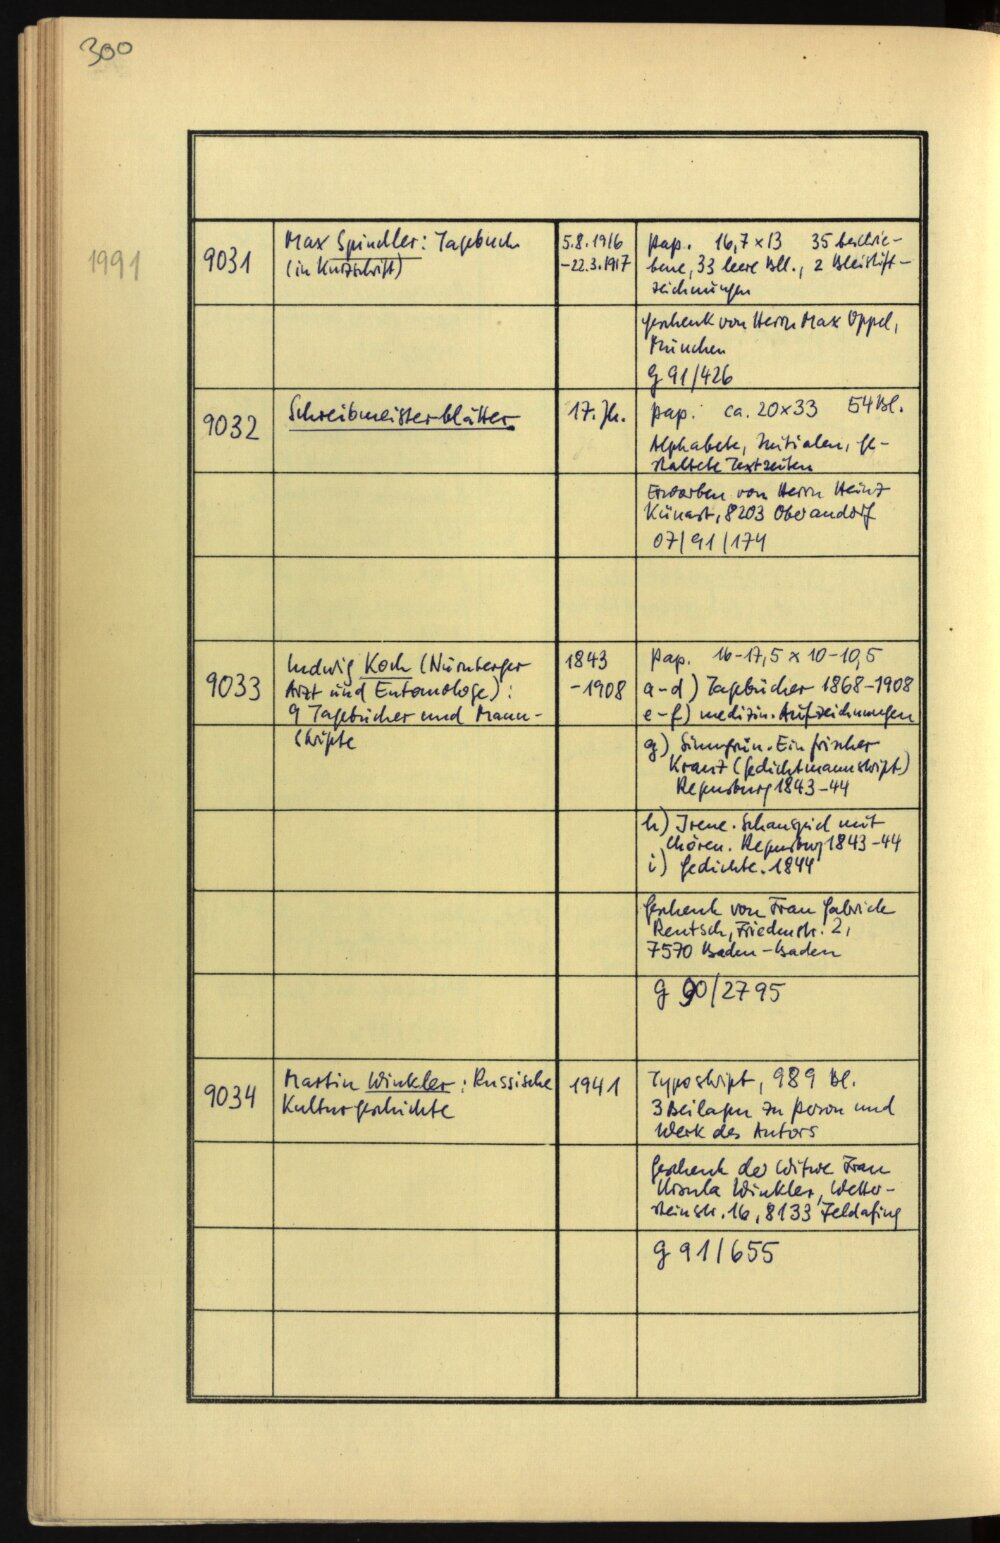 300
1991
9031
Max Spindler: Tagebuch
(in Kurzschrift)
5.8.1916
-22.3.1917
Pap. 16,7 x 13 35 beschrie-
bene, 33 leere Bll., 2 Bleistift-
zeichnungen
Geschenk von Herrn Max Oppel,
München
G 91/426
9032
Schreibmeisterblätter
17. Jh.
Pap. ca. 20x33 54 Bl.
Alphabete, Initialen, ge-
staltete Textzeilen
Erworben von Herrn Heinz
Künast, 8203 Oberaudorf
07/91/174
9033
Ludwig Koch (Nürnberger
Arzt und Entomologe):
9 Tagebücher und Manu-
skripte
1843
-1908
Pap. 16-17,5 x 10-10,5
a-d) Tagebücher 1868-1908
e-f) medizin. Aufzeichnungen
g) Sinngrün. Ein frischer
Kranz (Gedichtmanuskript)
Regensburg 1843-44
h) Irene. Schauspiel mit
Chören. Regensburg 1843-44
i) Gedichte. 1844
Geschenk von Frau Gabriele
Rentsch, Friedenstr. 2,
7570 Baden-Baden
G 90/2795
9034
Martin Winkler: Russische
Kulturgeschichte
1941
Typoskript, 989 Bl.
3 Beilagen zu Person und
Werk des Autors
Geschenk der Witwe Frau
Ursula Winkler, Wetter-
steinstr. 16, 8133 Feldafing
G 91/655